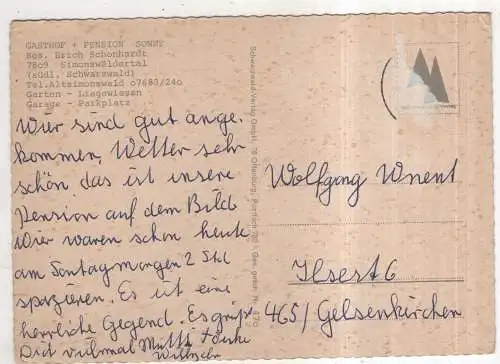 GASTHOF + PENSION SONNE
Bes. Erich Schonhardt
7809 Simonswäldertal
(südl. Schwarzwald)
Tel.Altsimonswald 07683/240
Garten - Liegewiesen
Garage - Parkplatz
Wier sind gut ange
kommen, Wetter sehr
schön das ist unsere
Pension auf dem Bild
Wier waren schon heute
am Sontagmorgen 2 Std
spazieren. Es ist eine
herrliche Gegend. Es grüßt
Dich vielmal Mutti +
Schwarzwald-Verlag GmbH, 76 Offenburg, Postfach
Wolfgang Wnent
Ilsest 6
465/Gelsenkirchen